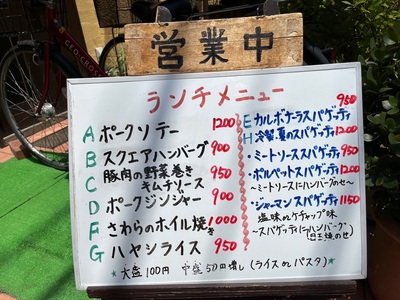 営業中
GEO CROSS
ランチメニュー
A ポークソテー 1200
B スクエアハンバーグ 900
C 豚肉の野菜巻き 950
キムチソース
D ポークジンジャー 900
F さわらのホイル焼き 1000
G ハヤシライス 950
E カルボナーラスパゲッティ 950
H 冷製夏のスパゲッティ 1200
・ミートソーススパゲッティ 950
・ポルペットスパゲッティ 1200
〜ミートソースにハンバーグのせ〜
・ジャーマンスパゲッティ 1150
塩味orケチャップ味
〜スパゲッティにハンバーグ
目玉焼のせ
★大盛100円 中盛50円増し(ライスorパスタ)★